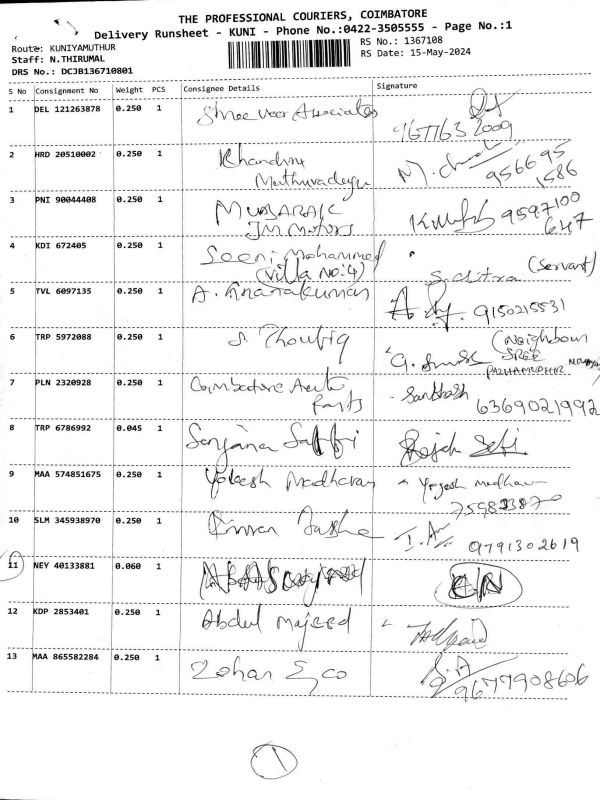 THE PROFESSIONAL COURIERS, COIMBATORE
Delivery Runsheet - KUNI - Phone No.:0422-3505555 - Page No.:1
Route: KUNIYAMUTHUR
RS No.: 1367108
Staff: N.THIRUMAL
RS Date: 15-May-2024
DRS No.: DCJB136710801
S No Consignment No Weight PCS Consignee Details Signature
1 DEL 121263878 0.250 1 Shree veer Associates
2 HRD 20510002 0.250 1
956695
1586
3 PNI 90044408 0.250 1 MUBARAK 9597100
JM Motors 647
4 KDI 672405 0.250 1 Seeni Mohammed
(Villa No:4) S. chitra (Servant)
5 TVL 6097135 0.250 1 A. Gnanakumar 9150215531
6 TRP 5972088 0.250 1 S. Thoufiq (Neighbour
SREE
7 PLN 2320928 0.250 1 Coimbatore Auto Santhosh
Parts 6369021992
8 TRP 6786992 0.045 1 Sanjana
9 MAA 574851675 0.250 1 Yogesh Madhavan Yogesh madhav
10 SLM 345938970 0.250 1
9791302619
11 NEY 40133881 0.060 1
12 KDP 2853401 0.250 1 Abdul majeed
13 MAA 865582284 0.250 1 Zohan & co S. A
9677908606
1